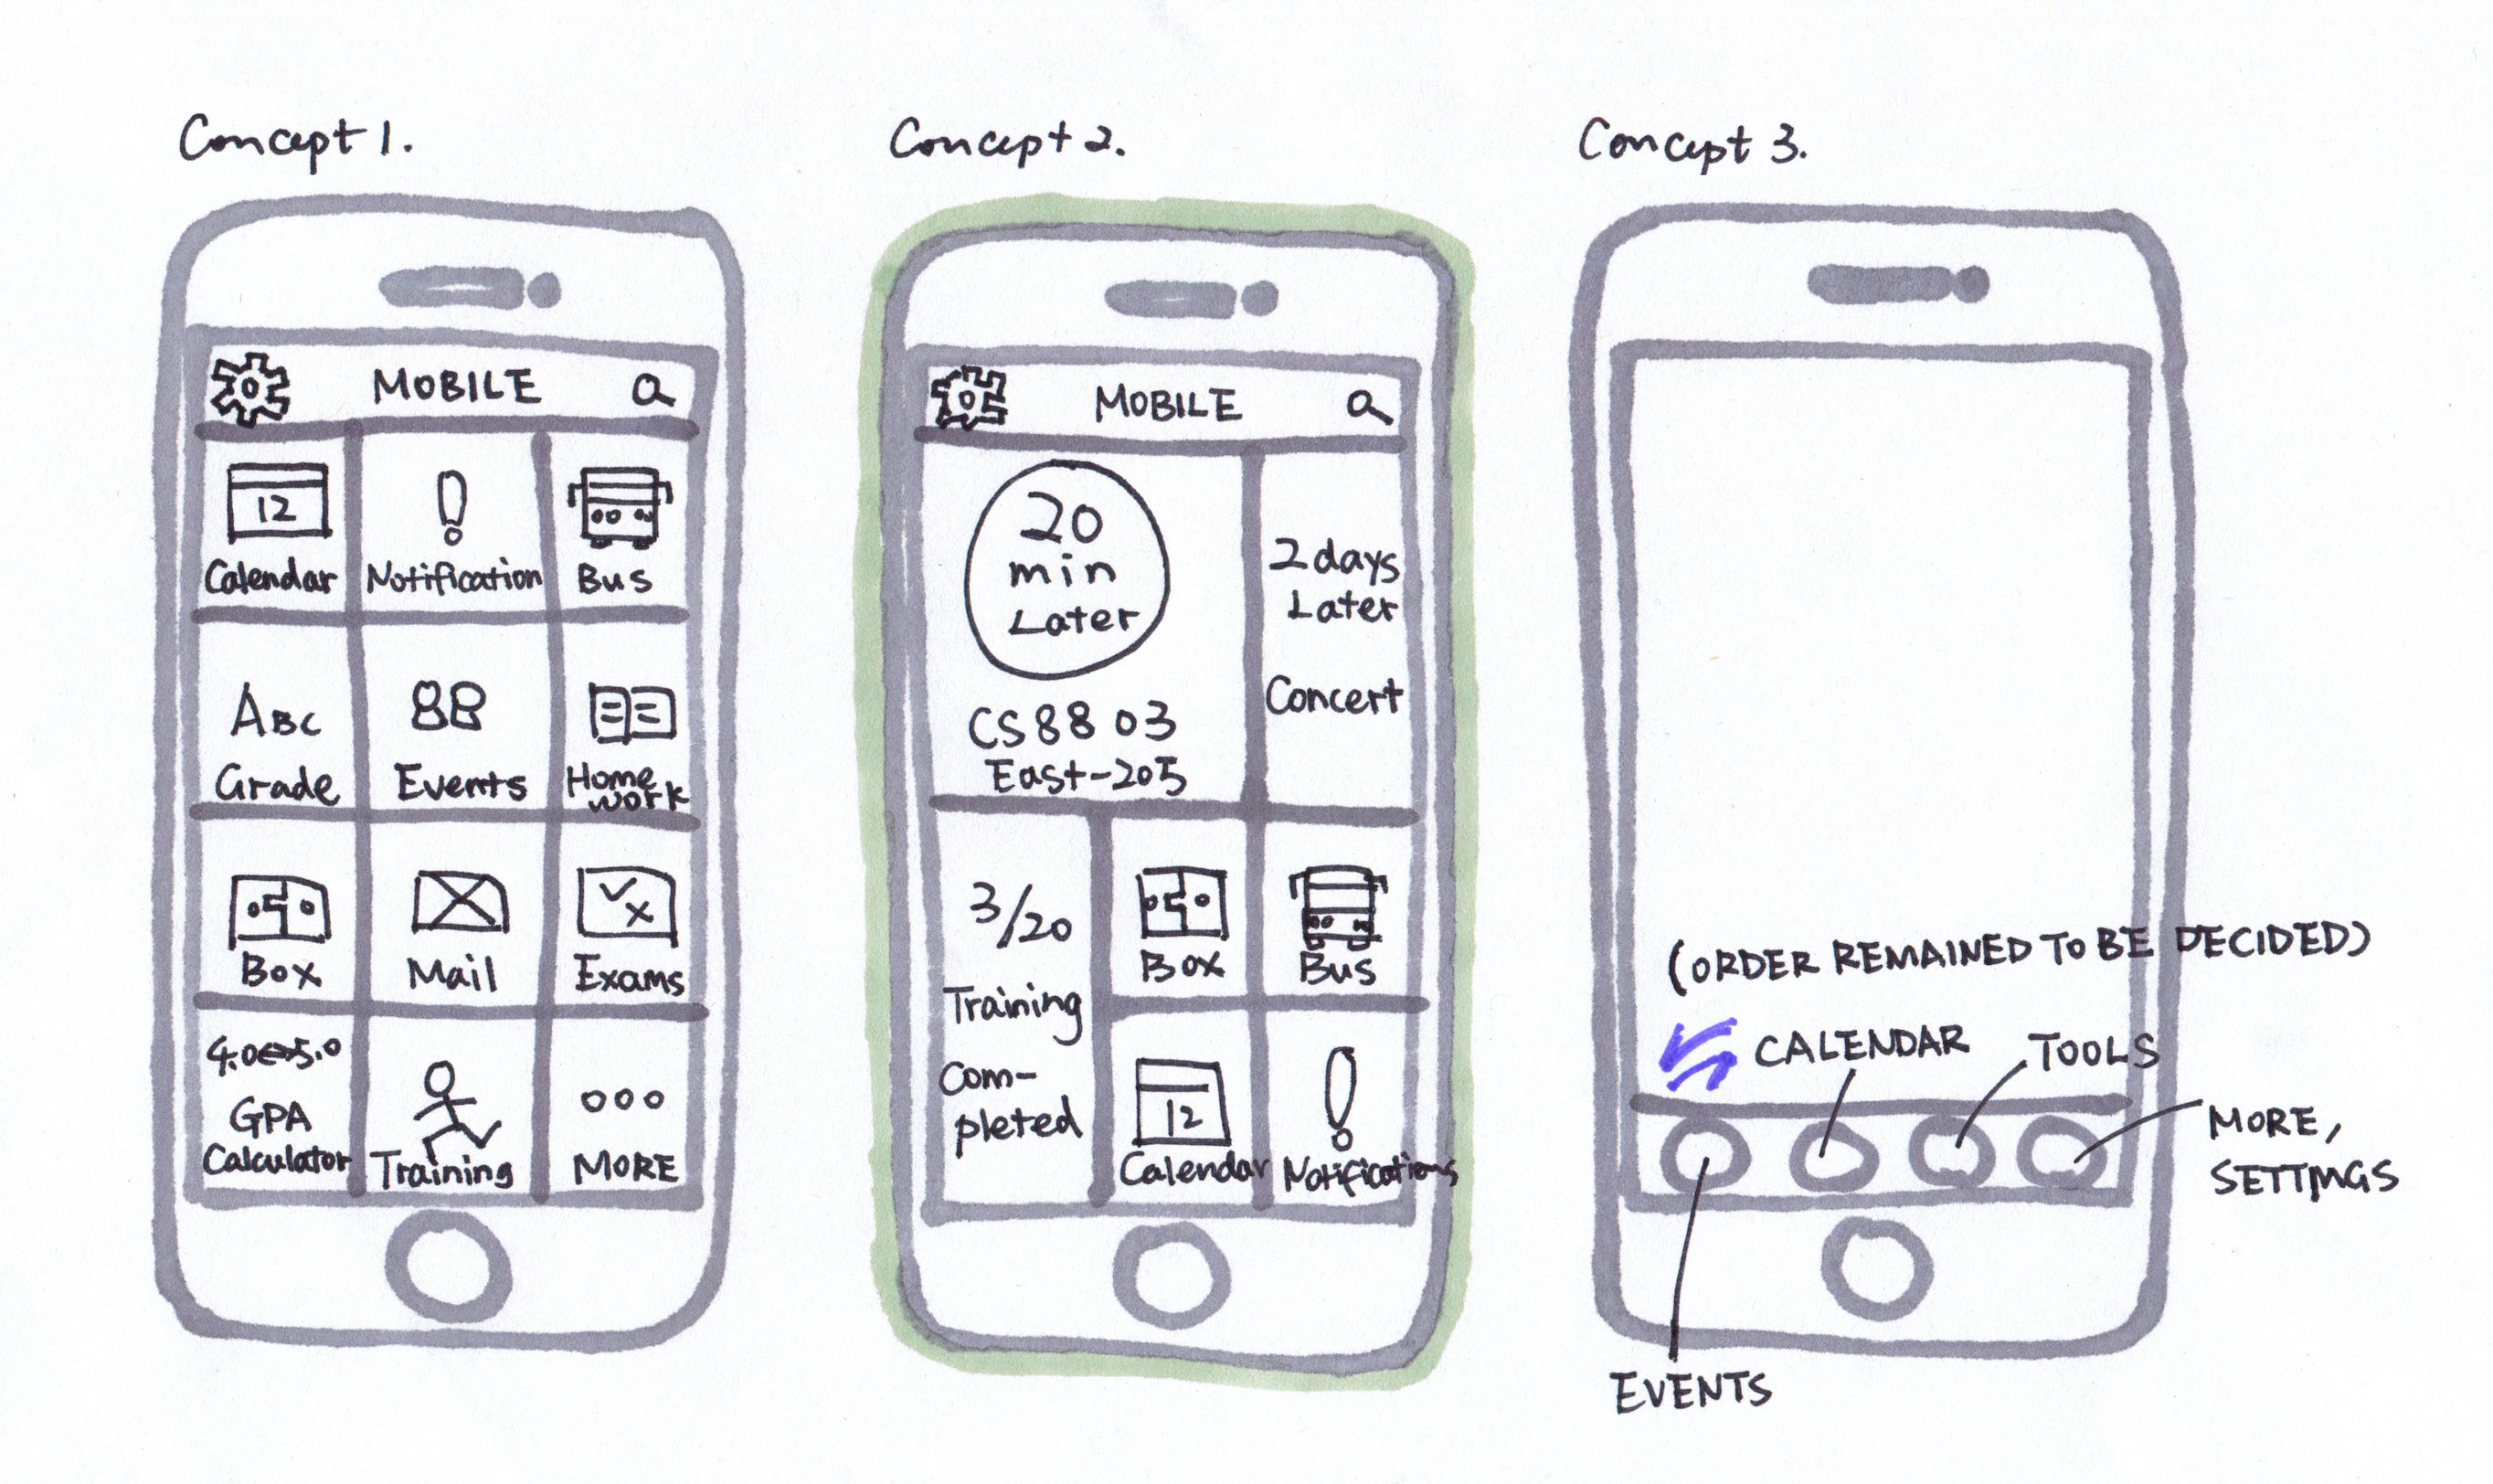 Concept 1.
MOBILE
12
Calendar
Notification
Bus
ABC
Grade
Events
Home
work
Box
Mail
Exams
4.0⇔5.0
GPA
Calculator
Training
MORE
Concept 2.
MOBILE
20
min
Later
CS8803
East-205
2days
Later
Concert
3/20
Training
Com-
pleted
Box
Bus
12
Calendar
Notifications
Concept 3.
(ORDER REMAINED TO BE DECIDED)
CALENDAR
TOOLS
MORE,
SETTINGS
EVENTS